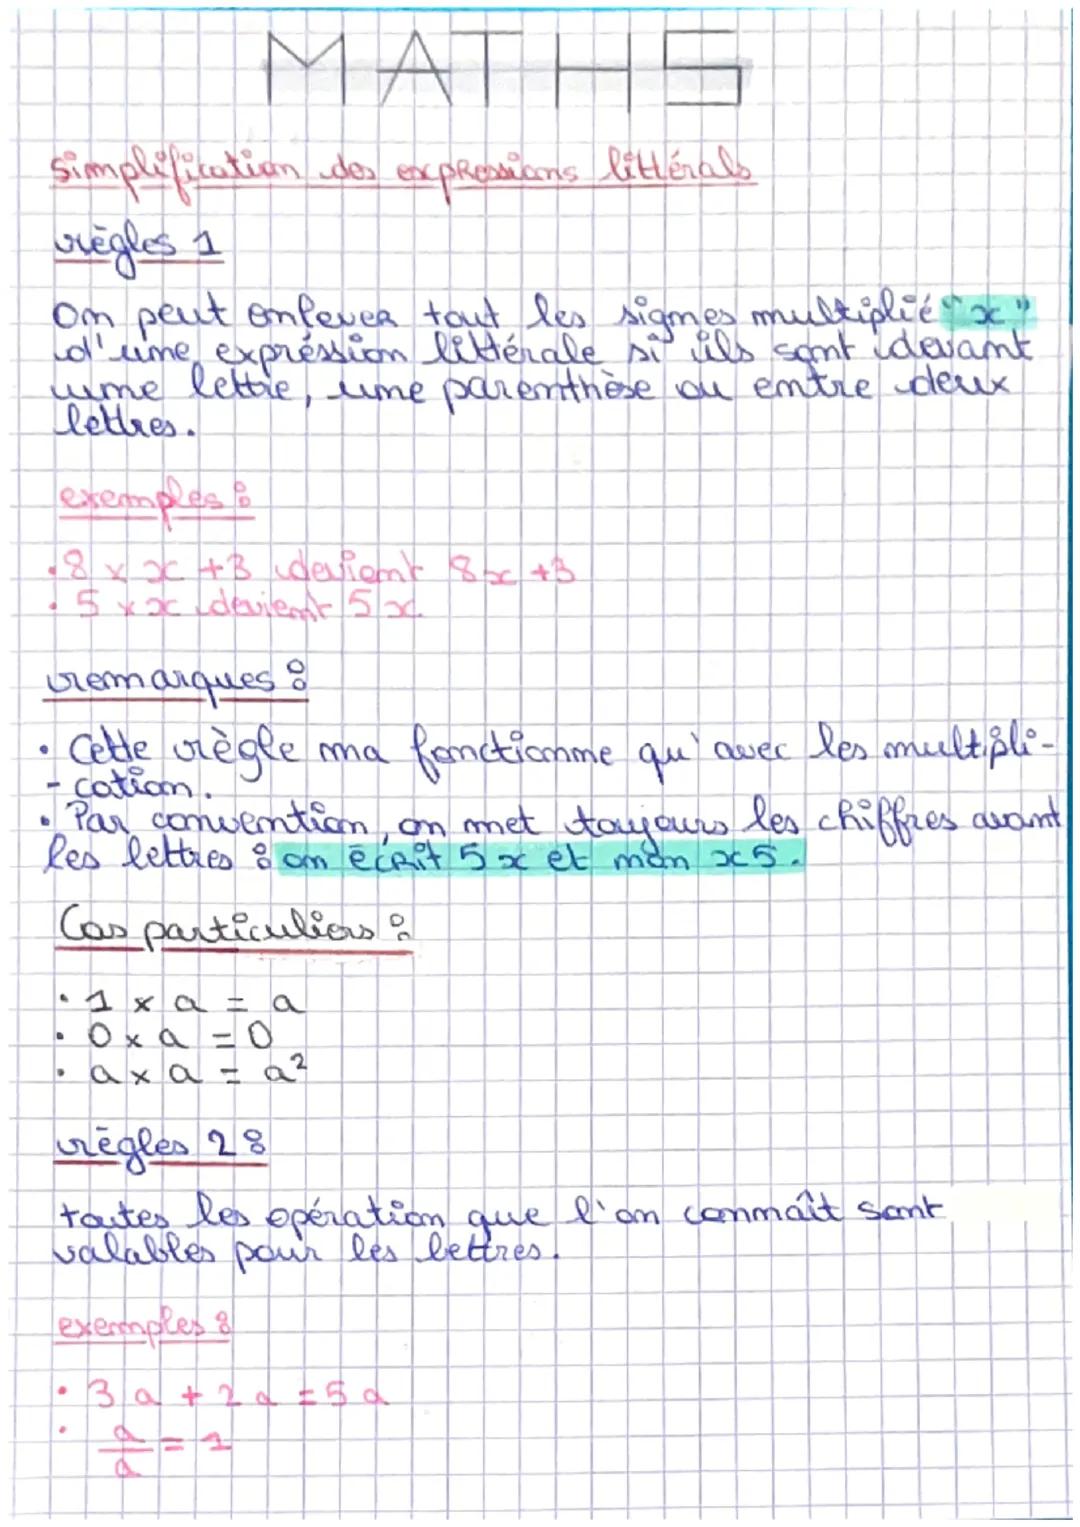 MATHS
simplification des expressions littérals
règles 1
On peut enlever tout les signes multiplié "x"
d'une expréssion littérale si ils sont devant
une lettre, une parenthèse ou entre deux
lettres.
exemples :
• 8 × x + 3 devient 8x + 3
• 5 × x devient 5x
remarques :
• Cette règle ma fonctionne qu'avec les multipli-
- cation.
• Par convention, on met toujours les chiffres avant
les lettres : on écrit 5x et non x5.
Cas particuliers :
• 1 × a = a
• 0 × a = 0
• a × a = a²
règles 2 :
toutes les opération que l'on connaît sont
valables pour les lettres.
exemples :
• 3a + 2a = 5a
• a/a = 1